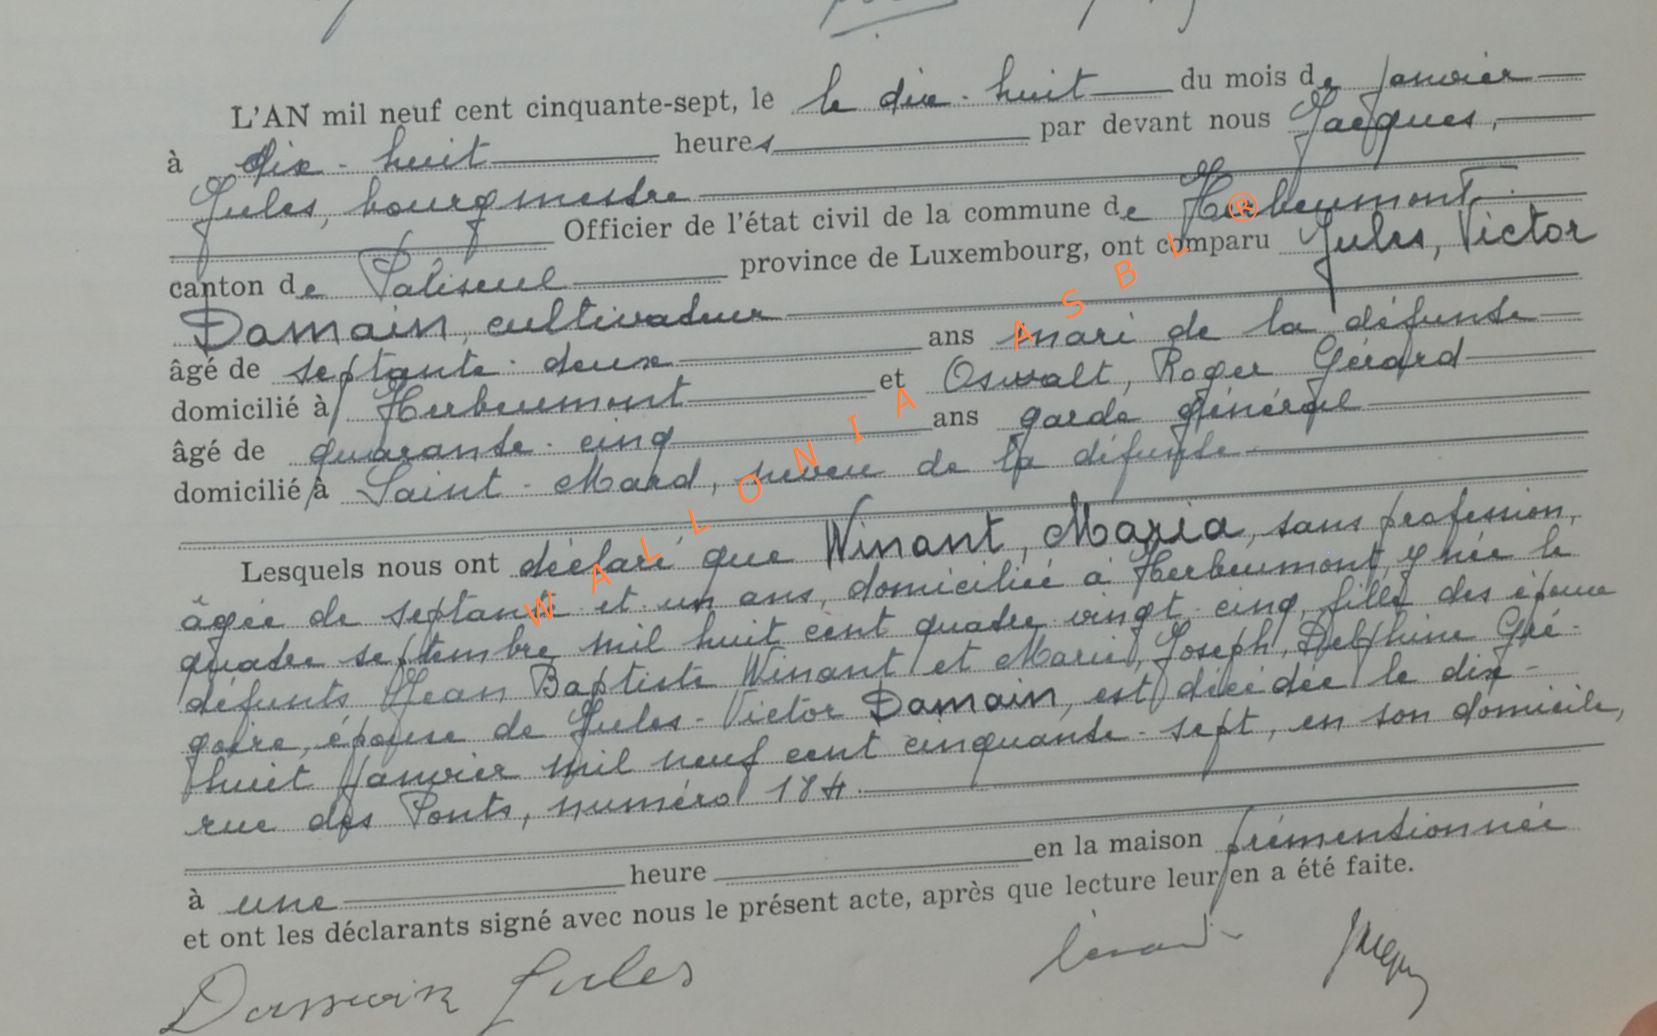 L'AN mil neuf cent cinquante-sept, le le dix-huit du mois de Janvier
à dix-huit heures par devant nous Jacques,
Jules, bourgmestre
Officier de l'état civil de la commune de Herbeumont
canton de Paliseul province de Luxembourg, ont comparu Jules, Victor
Damain, cultivateur
âgé de septante-deux ans mari de la défunte
domicilié à Herbeumont et Oswalt, Roger Gérard
âgé de quarante-cinq ans garde général
domicilié à Saint-Mard, neveu de la défunte
Lesquels nous ont déclaré que Winant, Maria, sans profession,
âgée de septante et un ans, domiciliée à Herbeumont, y née le
quatre septembre mil huit cent quatre vingt-cinq, fille des époux
défunts Jean Baptiste Winant et Marie, Joseph, Delphine Gré-
goire, épouse de Jules-Victor Damain, est décédée le dix-
huit Janvier mil neuf cent cinquante-sept, en son domicile,
rue des Ponts, numéro 184.
à une heure en la maison prémentionnée
et ont les déclarants signé avec nous le présent acte, après que lecture leur en a été faite.
Damain Jules
WALLONIA ASBL ®